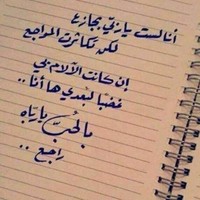 أنا لست يا ربّي بجازع
لكن تكاثرت المواجع
إن كانت الآلام بي
غضبًا لبُعدي ها أنا ..
بالحُبّ يا ربّاه
راجع ..